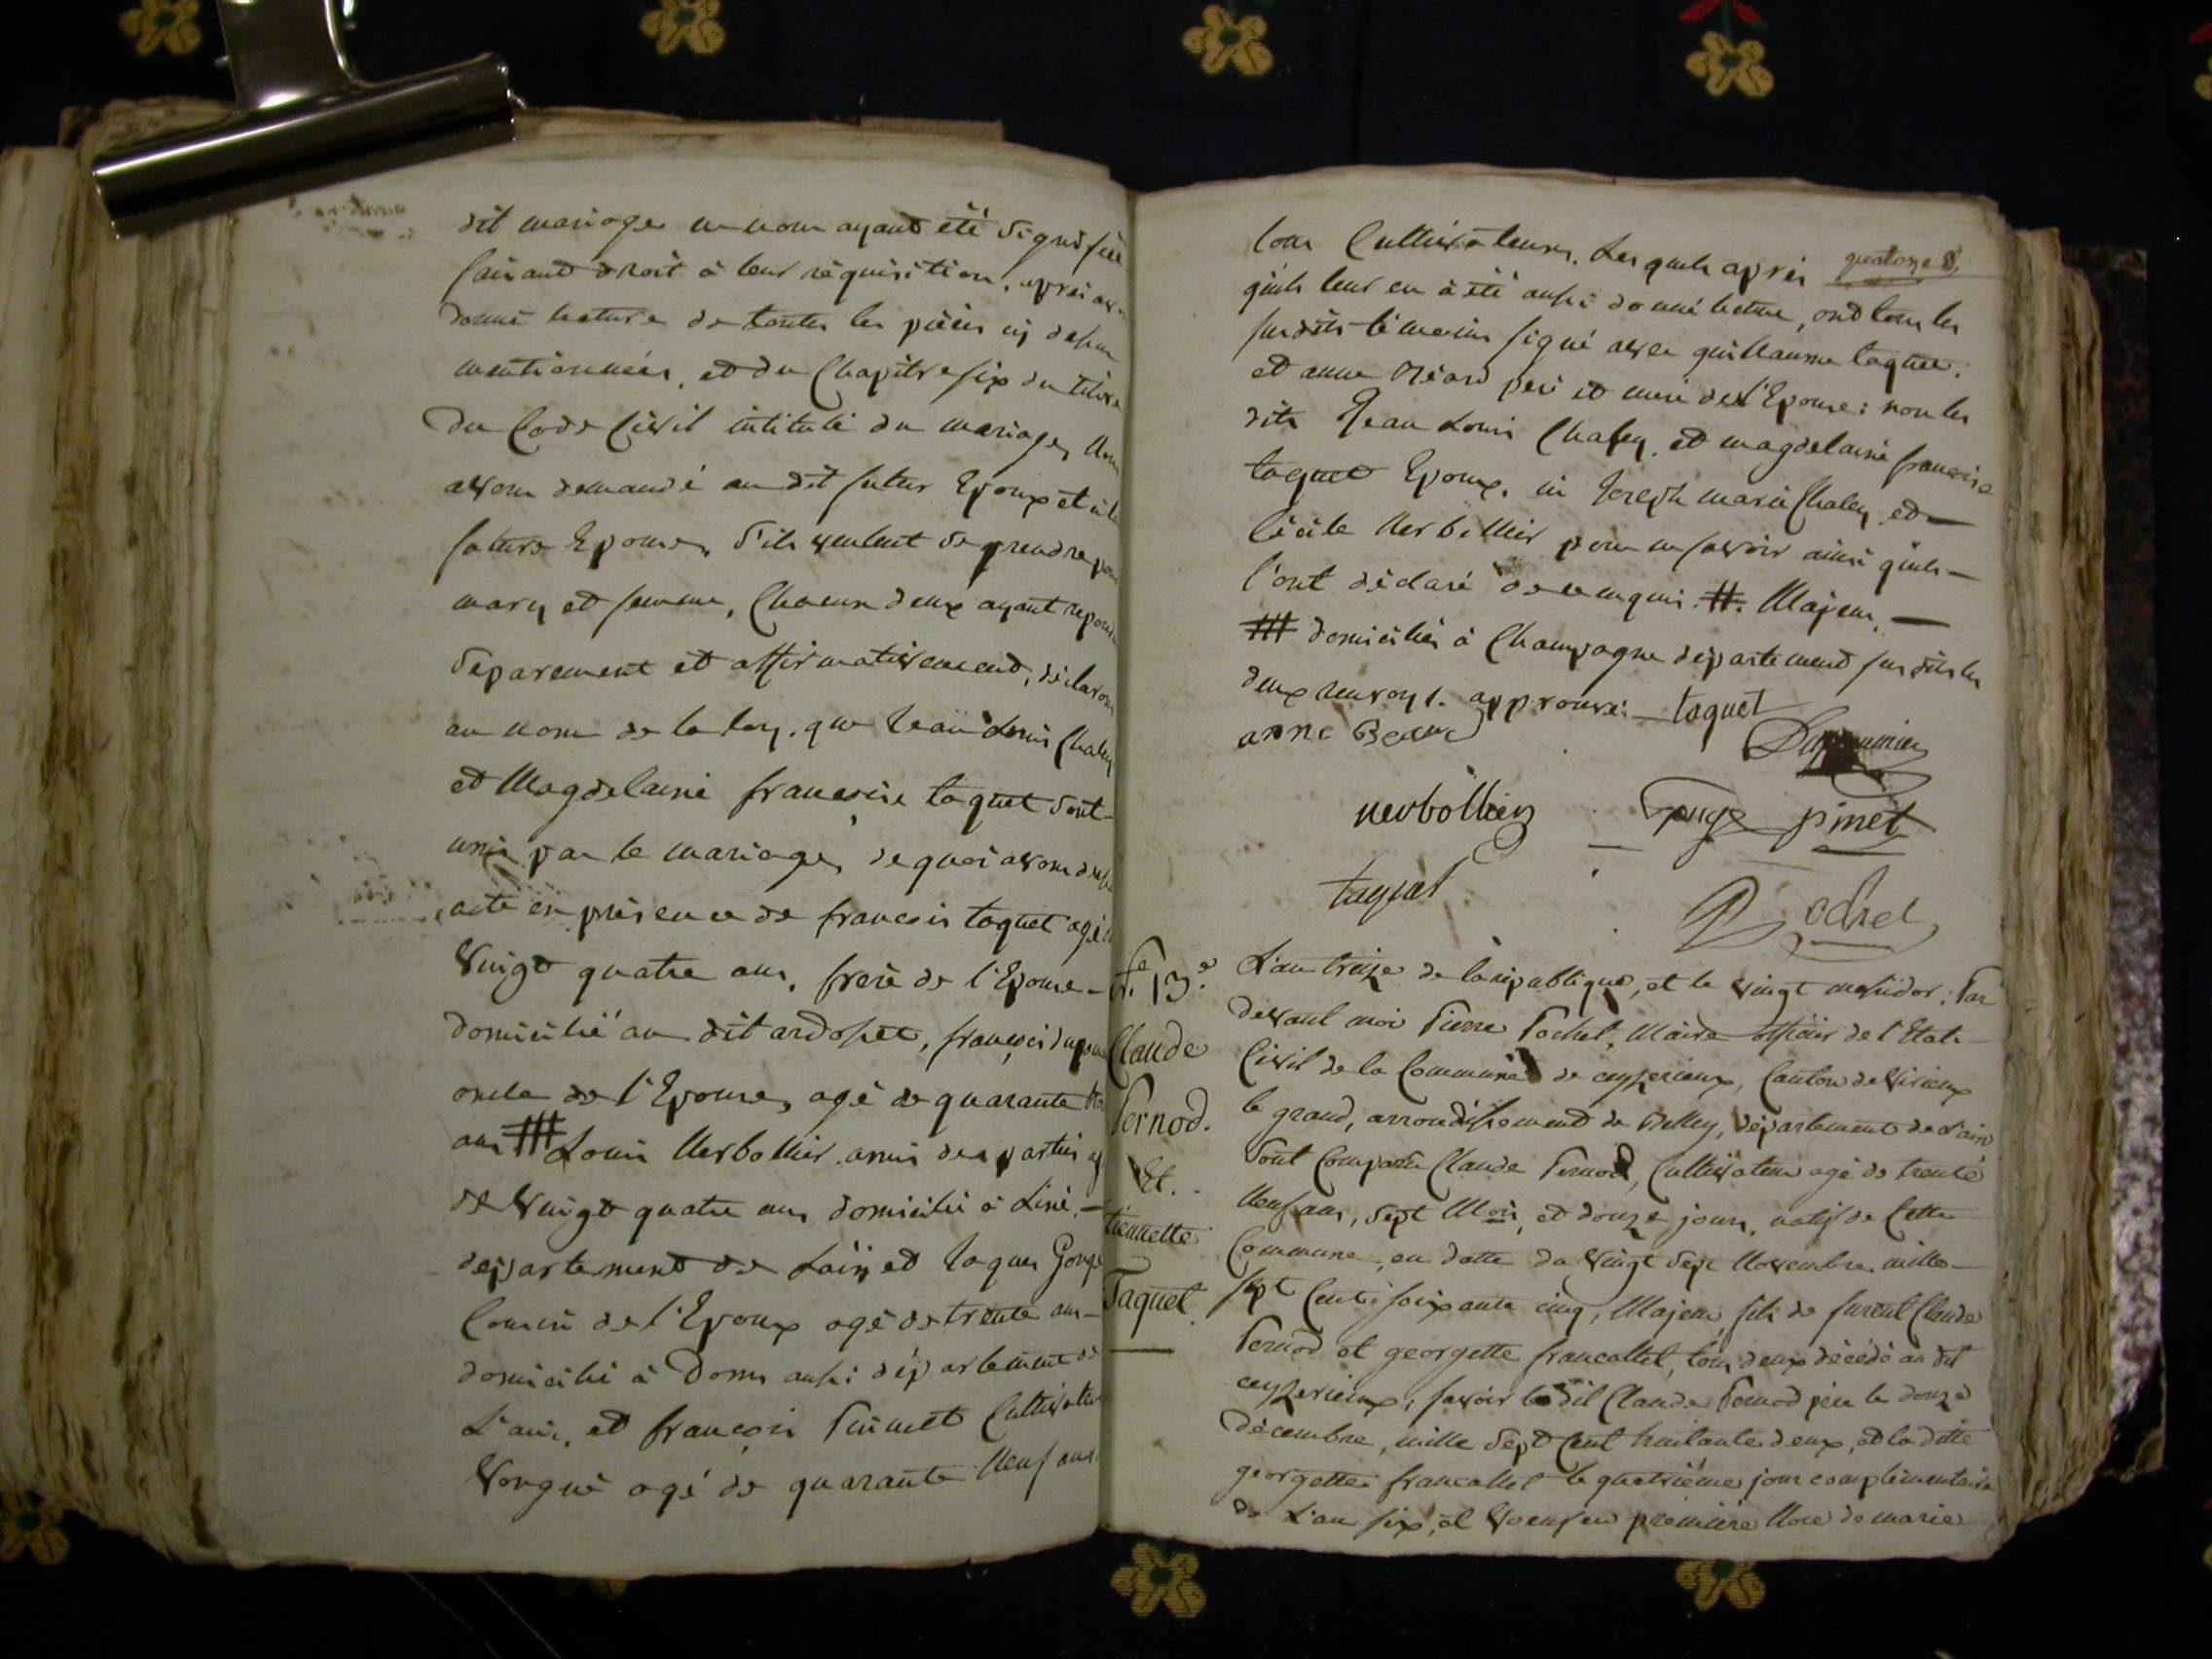 dit mariage ne nous ayant été signifiée
faisant droit à leur réquisition, après av
donné lecture de toutes les pièces cy dessus
mentionnées, et du Chapitre six du titre
du Code Civil intitulé du mariage, Nous
avons demandé au dit futur Epoux et à la
future Epouse, s'ils veulent se prendre pour
mary et femme, Chacun deux ayant repondu
Séparement et affirmativement, déclarons
au nom de la loy, que Jean Louis Chaley
et Magdelaine françoise taquet Sont
unis par le mariage, de quoi avons dressé
acte en présence de françois taquet agé de
Vingt quatre ans, frere de l'Epouse
domicilié au dit ardosset, françois
oncle de l'Epouse, agé de quarante
ans ⧻ Louis Nerbollier, amis des parties
de Vingt quatre ans domicilié à
département de L'ain et Jaques Gonge
Cousin de l'Epoux agé de trente ans
domicilié à aussi département de
L'ain, et françois Pinnet Cultivateur
Vongne agé de quarante Neuf ans
quatorze
tous Cultivateurs. Lesquels après
qu'ils leur en à été aussi donné lecture, ont tous les
susdits témoins signé avec guillaume taquet
et anne Béard père et mere de l'Epouse: non les
dits Jean Louis Chaley, et magdelaine francoise
taquet Epoux, ni Joseph marie Chaley et
Cécile Nerbollier pour ne savoir ainsi qu'ils
l'ont déclaré de ce enquis. ⧺. Majeur,
⧻ domiciliés à Champagne département susdits les
deux renvoys. approuvé. taquet
anne Beard
nerbollier Gonge pinet
taquet
P. Pochet
N.e 13.e
Claude
Pernod.
Et.
tiennette
Taquet.
L'an treize de la république, et le Vingt messidor; Par
devant moi Pierre Pochet, Maire officier de l'Etat
Civil de la Commune de ceyzerieux, Canton de Virieux
le grand, arrondissement de Belley, département de L'ain
Sont Comparu Claude Pernod, Cultivateur agé de trente
Neuf ans, Sept Mois, et douze jours, natif de Cette
Commune, en datte du Vingt Sept Novembre mille
Sept Cent soixante cinq, Majeur, fils de furent Claude
Pernod et georgette francallet, tous deux décédé au dit
ceyzerieux; savoir le dit Claude Pernod père le douze
décembre, mille Sept Cent huitante deux, et la ditte
georgette francallet le quatrième jour complémentaire
de L'an six, et Veuf en première Noce de marie